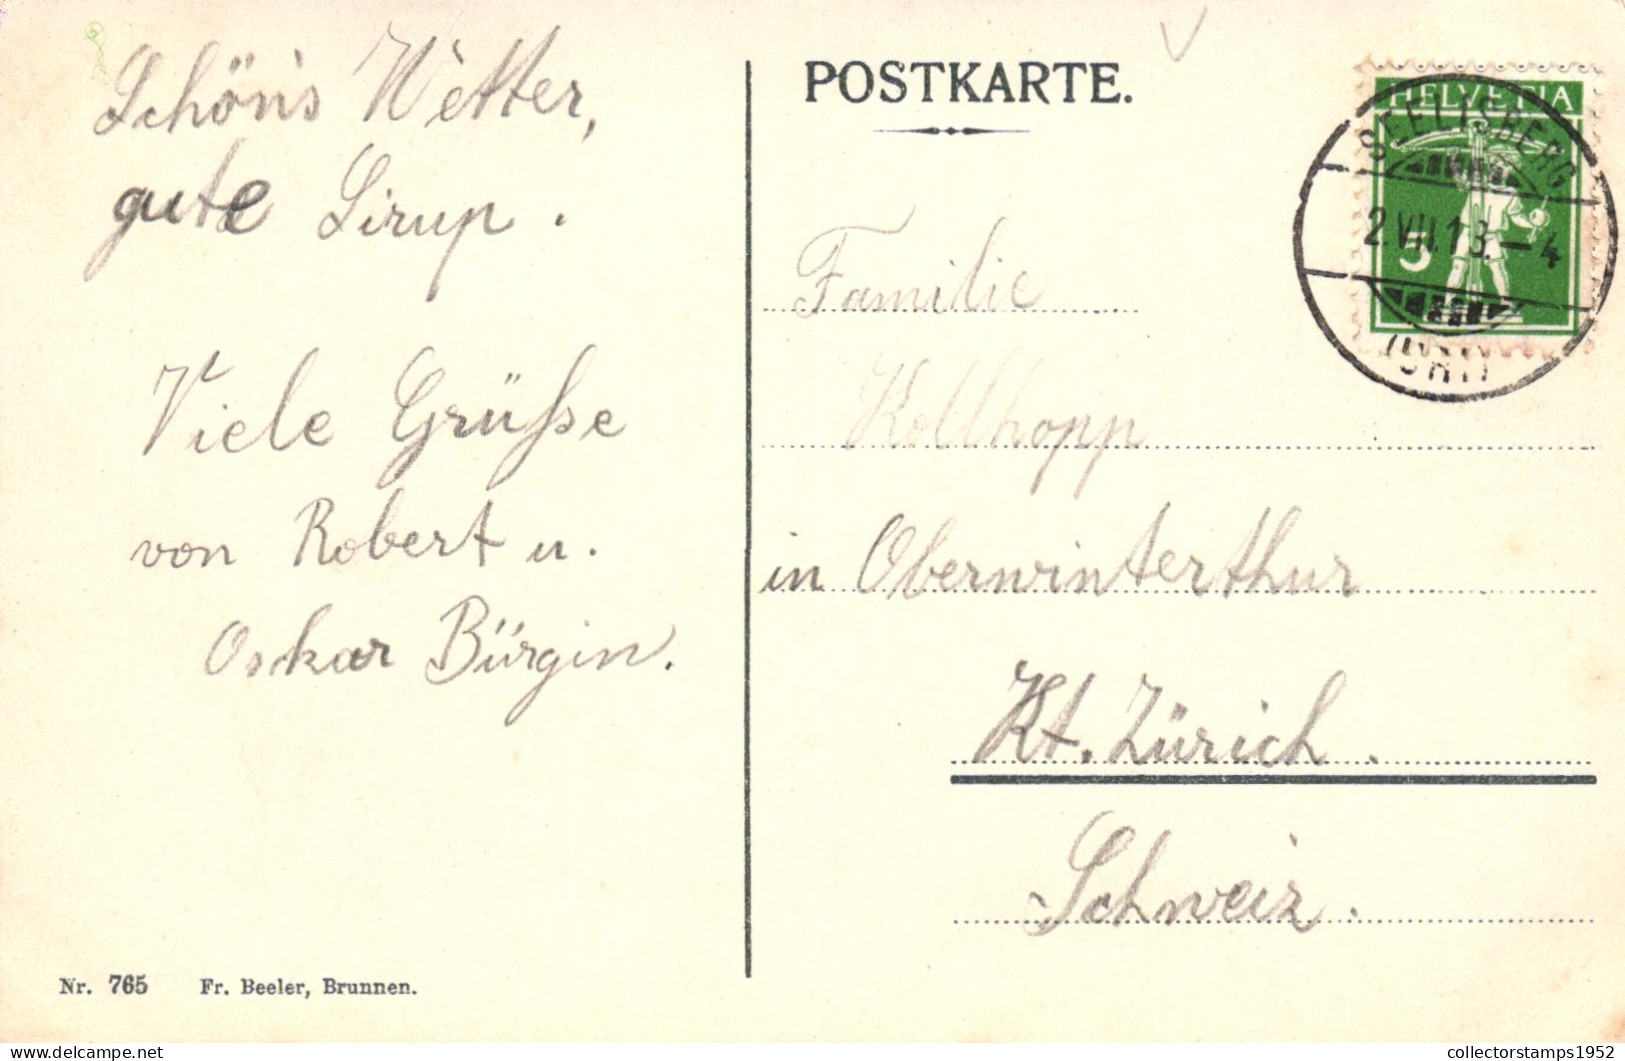 Schön's Wetter,
gute Sirup.
Viele Grüsse
von Robert u.
Oskar Bürgin.
Nr. 765 Fr. Beeler, Brunnen.
POSTKARTE.
HELVETIA
5
SEELISBERG
2.VII.13.–4
(URI)
Familie
Kollhopp
in Oberwinterthur
Kt. Zürich.
Schweiz.
collectorstamps1952